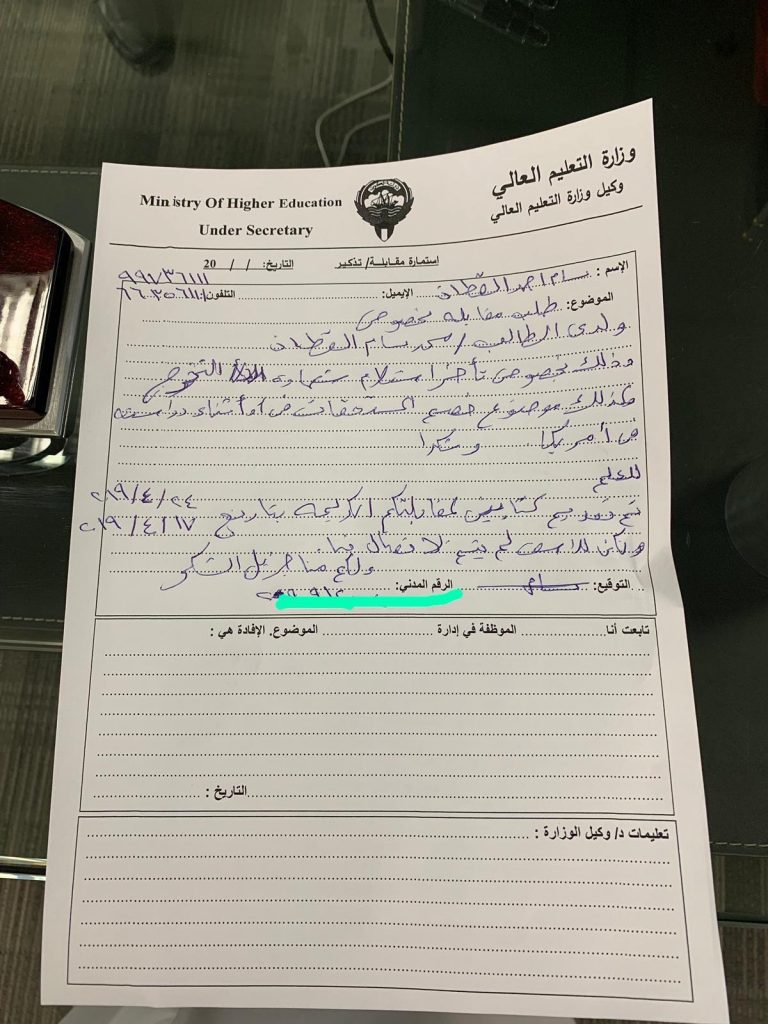 وزارة التعليم العالي
وكيل وزارة التعليم العالي
Ministry Of Higher Education
Under Secretary
إستمارة مقابلة/ تذكير التاريخ: / / 20
الإسم : بسام احمد القطان ٩٩٧٣٦١١١
الإيميل: التلفون:
الموضوع: طلب مقابله بخصوص
ولدى الطالب / محمد بسام القطان
وذلك بخصوص تأخر استلام شهادة التخرج
وكذلك موضوع خصم المستحقات أثناء دراسته
في أمريكا وشكرا
للعلم
تم تقديم كتابين لمقابلتكم الكريمه بتاريخ ٢٠١٩/٤/١٧ ٢٠١٩/٤/٢٤
ولكن للاسف لم يتم الاتصال بنا.
ولكم منا جزيل الشكر
التوقيع: الرقم المدني:
تابعت أنا الموظفة في إدارة الموضوع. الإفادة هي :
التاريخ :
تعليمات د/ وكيل الوزارة :